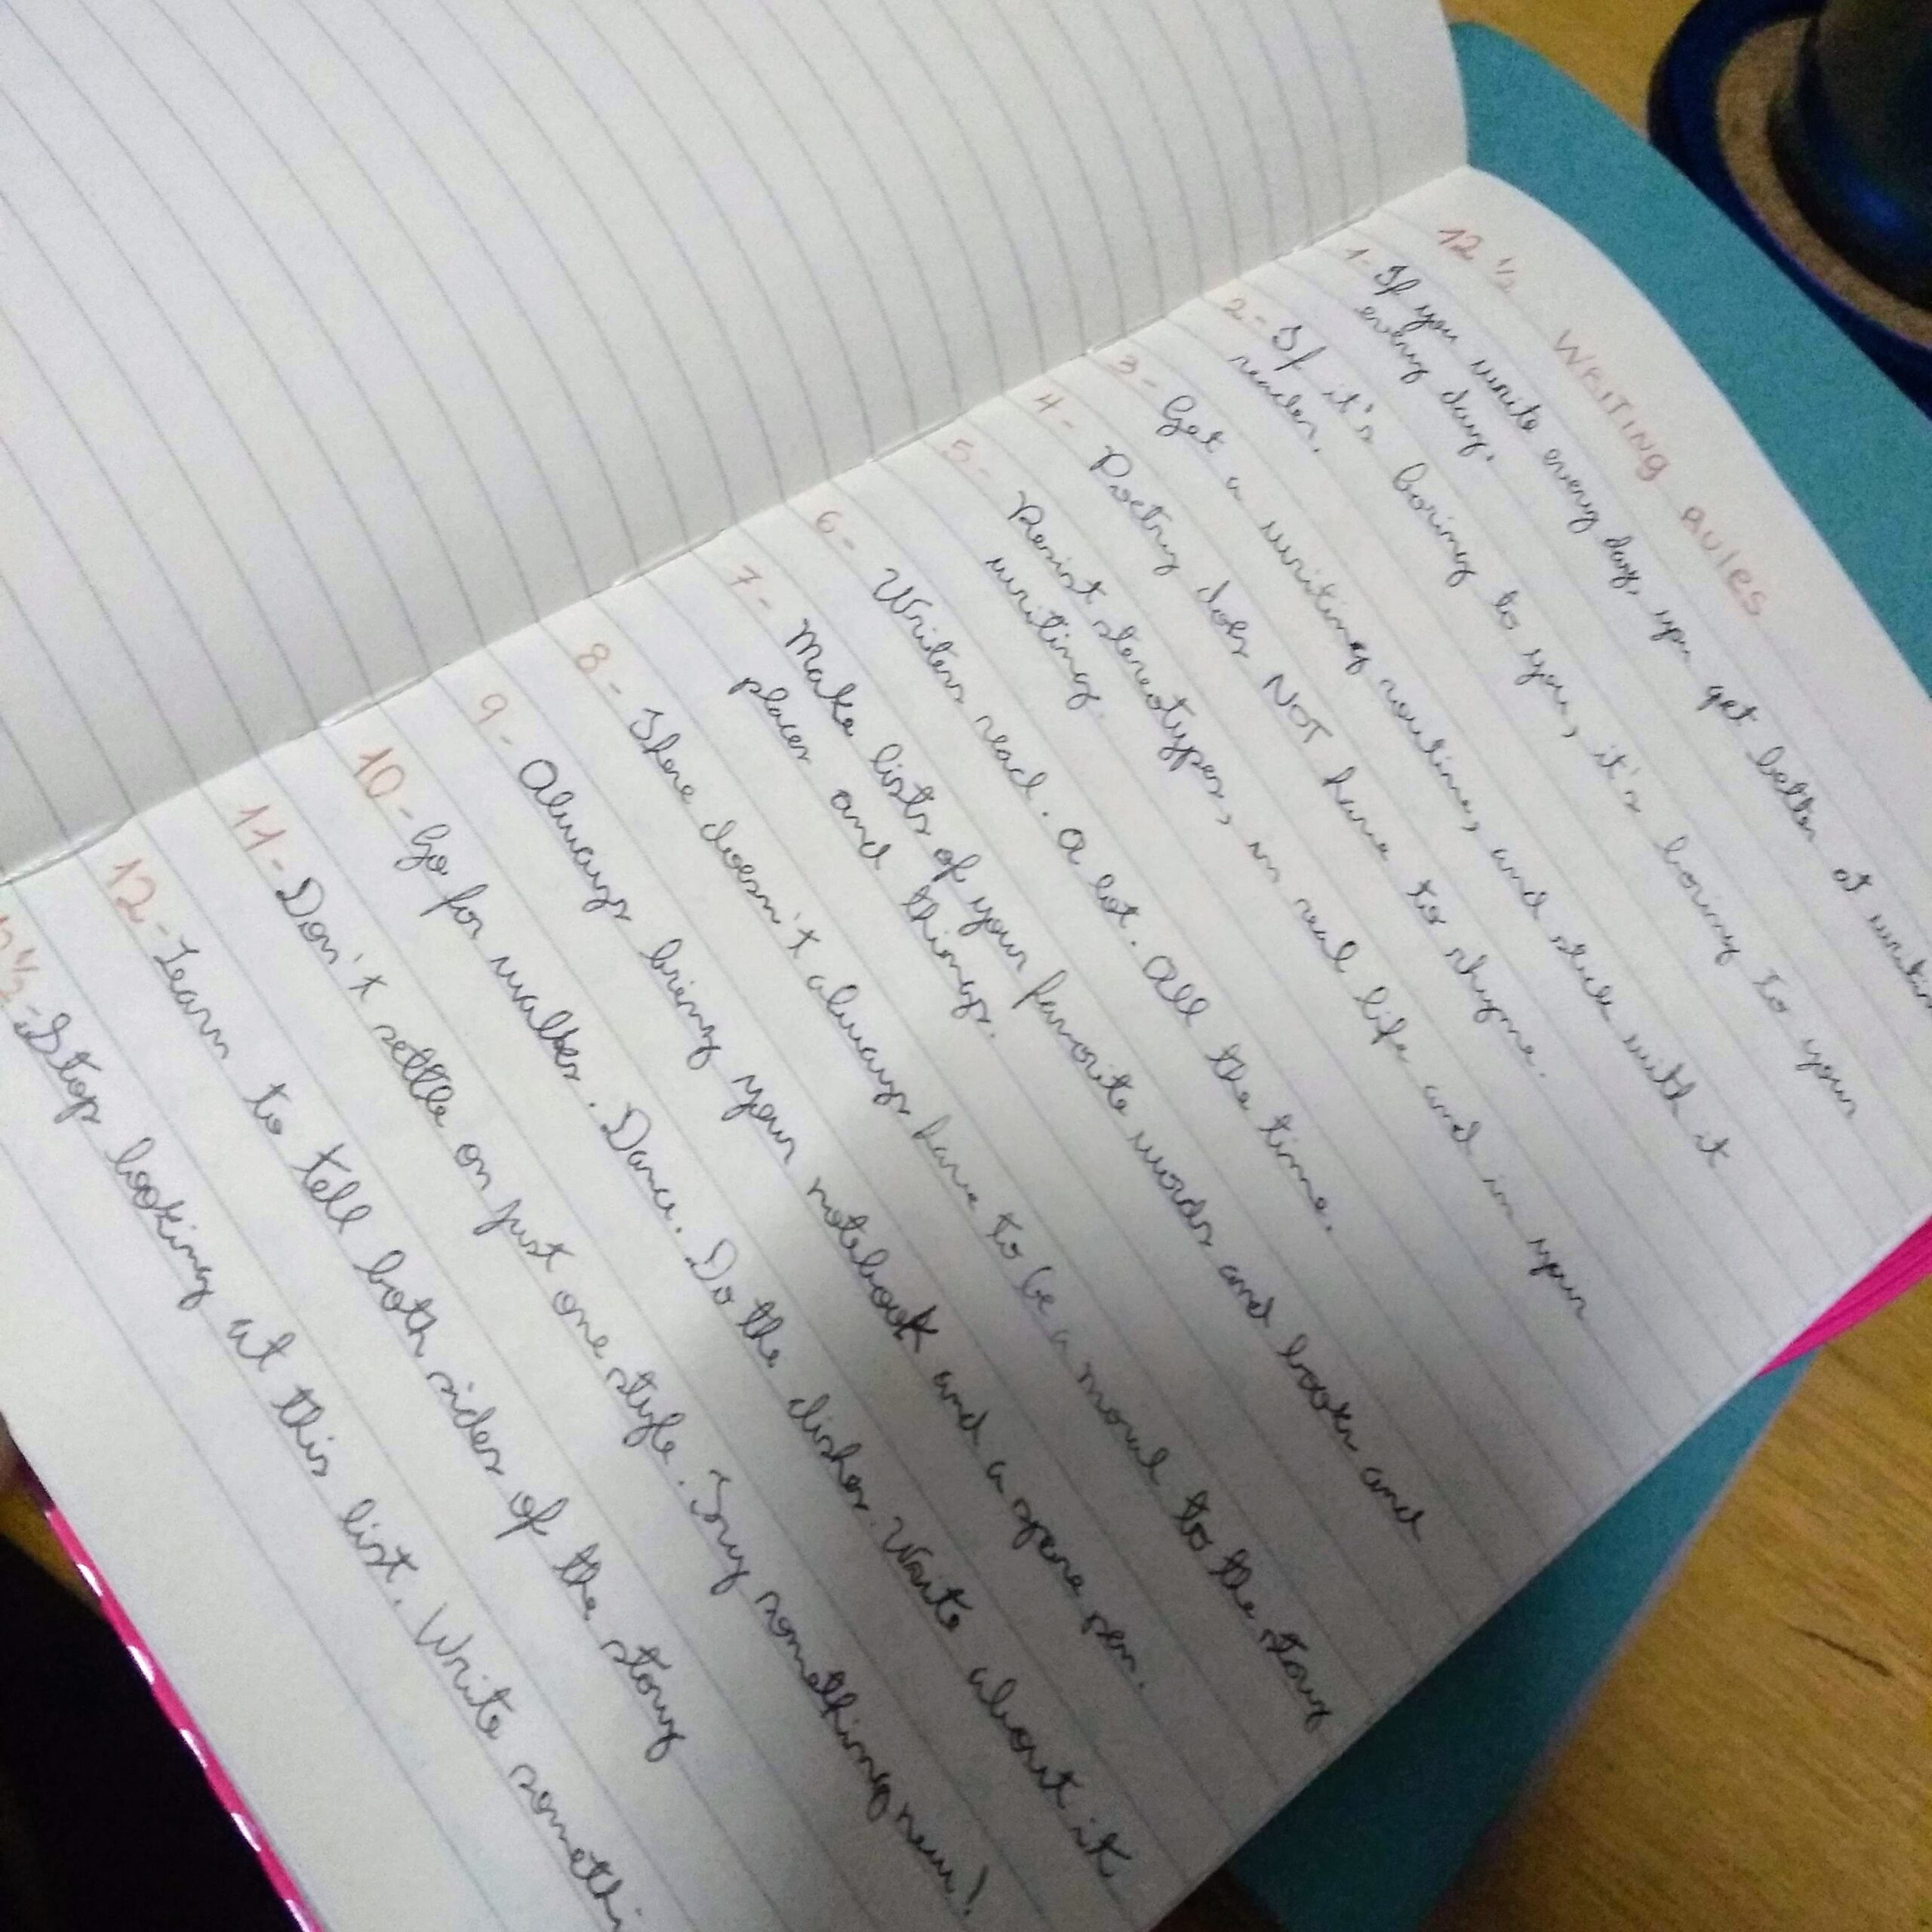 12 ½ WRITING RULES
1- If you write every day, you get better at writin
every day.
2- If it's boring to you, it's boring to your
reader.
3- Get a writing routine, and stick with it
4- Poetry does NOT have to rhyme.
5- Resist stereotypes, in real life and in your
writing.
6- Writers read. A lot. All the time.
7- Make lists of your favorite words and books and
places and things.
8- There doesn't always have to be a moral to the story
9- Always bring your notebook and a spare pen.
10- Go for walks. Dance. Do the dishes. Write about it
11- Don't settle on just one style. Try something new!
12- Learn to tell both sides of the story
12 ½- Stop looking at this list. Write somethi